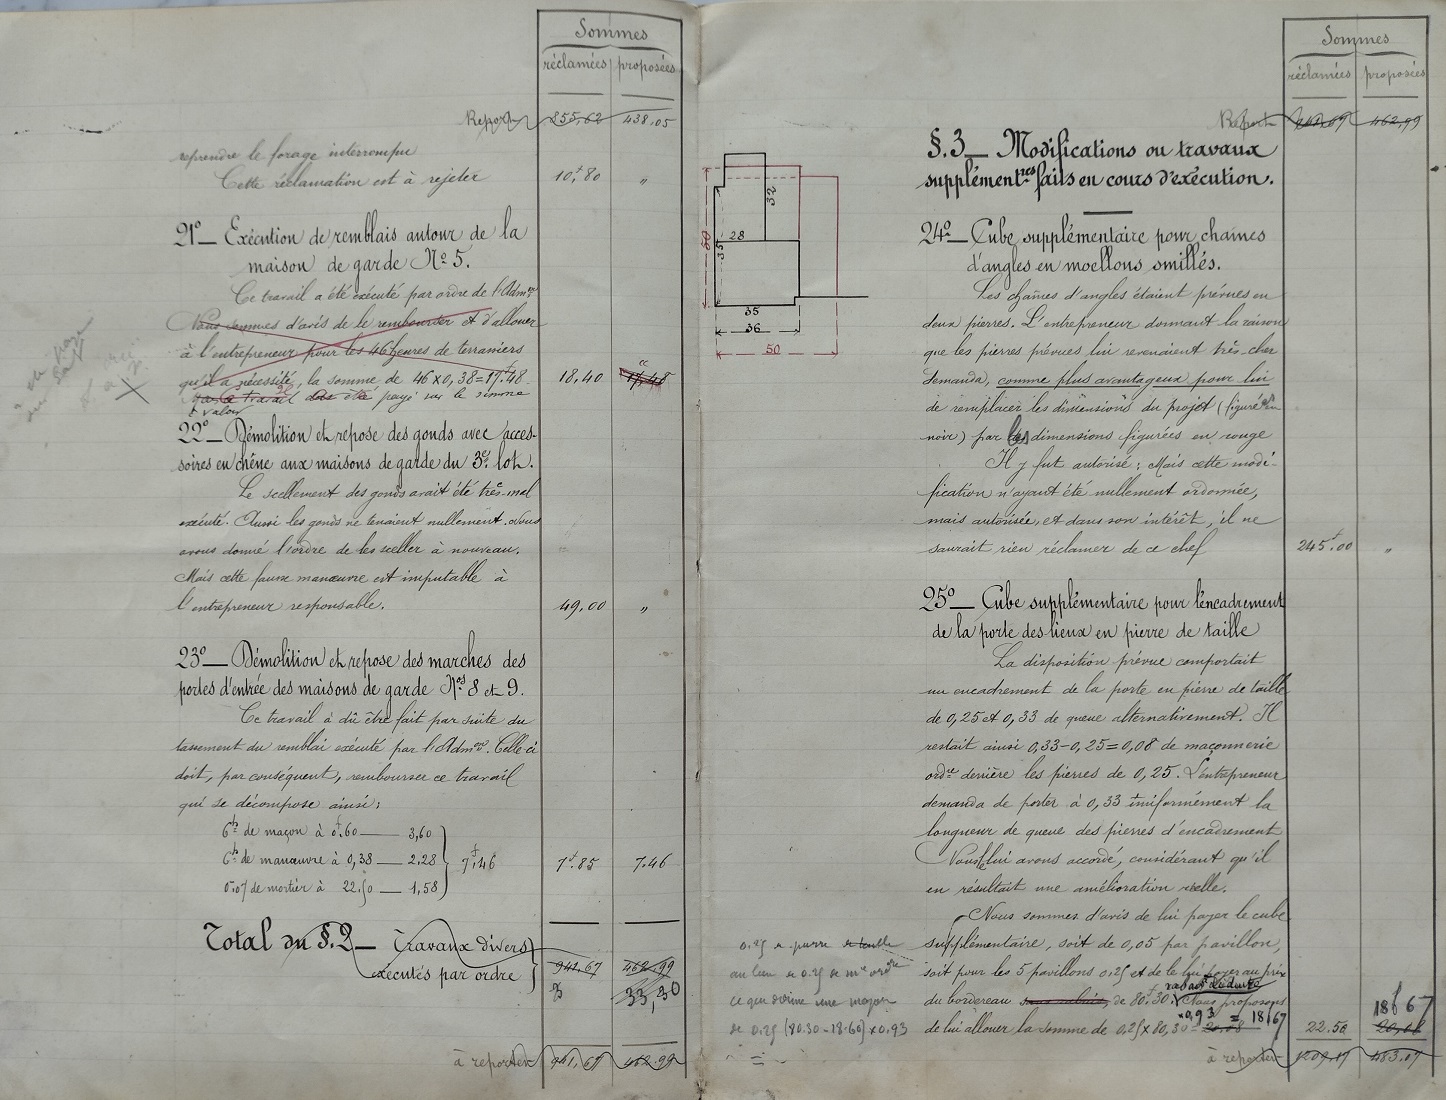 Sommes
réclamées proposées
Report 255,62 438.05
reprendre le forage interrompu
Cette réclamation est à rejeter 10f.80 "
21º_ Exécution de remblais autour de la
maison de garde Nº 5.
Ce travail a été exécuté par ordre de l'Admon
Nous sommes d'avis de le rembourser et d'allouer
à l'entrepreneur pour les 46 heures de terrassiers
qu'il a nécessité, la somme de 46 x 0,38 = 17f.48 18,40 17,48
travail été payé sur le
valoir
22º_ Démolition et repose des gonds avec acces-
soires en chêne aux maisons de garde du 3e lot.
Le scellement des gonds avait été très-mal
exécuté. Aussi les gonds ne tenaient nullement. Nous
avons donné l'ordre de les sceller à nouveau.
Mais cette fausse manœuvre est imputable à
l'entrepreneur responsable. 49,00 "
23º_ Démolition et repose des marches des
portes d'entrée des maisons de garde Nos 8 et 9.
Ce travail à dû être fait par suite du
tassement du remblai exécuté par l'Admon. Celle ci
doit, par conséquent, rembourser ce travail
qui se décompose ainsi:
6h de maçon à 0f.60 — 3,60
6h de manœuvre à 0,38 — 2,28 7f.46 7f.85 7.46
0m.07 de mortier à 22.50 — 1,58
Total du §.2_ Travaux divers
exécutés par ordre 941.67 462.99
33,30
à reporter 941,67 462.99
60
32
28
35
35
36
50
0.25 de pierre de taille
au lieu de 0.25 de mie ordre
ce qui donne une moyen
de 0.25 (80.30-18.60) x 0.93
=
Sommes
réclamées proposées
Report 941.67 462,99
§.3_ Modifications ou travaux
supplémentres faits en cours d'exécution.
24º_ Cube supplémentaire pour chaînes
d'angles en moellons smillés.
Les chaînes d'angles étaient prévues en
deux pierres. L'entrepreneur donnant la raison
que les pierres prévues lui revenaient très-cher
demanda, comme plus avantageux pour lui
de remplacer les dimensions du projet (figuré en
noir) par les dimensions figurées en rouge
Il y fut autorisé; Mais cette modi-
fication n'ayant été nullement ordonnée,
mais autorisée, et dans son intérêt, il ne
saurait rien réclamer de ce chef 245f.00 "
25º_ Cube supplémentaire pour l'encadrement
de la porte des lieux en pierre de taille
La disposition prévue comportait
un encadrement de la porte en pierre de taille
de 0,25 et 0,33 de queue alternativement. Il
restait ainsi 0,33-0,25=0,08 de maçonnerie
ordre derrière les pierres de 0,25. L'entrepreneur
demanda de porter à 0,33 uniformément la
longueur de queue des pierres d'encadrement
Nous lui avons accordé, considérant qu'il
en résultait une amélioration réelle.
Nous sommes d'avis de lui payer le cube
supplémentaire, soit de 0,05 par pavillon,
soit pour les 5 pavillons 0,25 et de le lui payer au prix
rabais déduire
du bordereau sans rabais, de 80f.30. Nous proposons
x0,93 = 18f67 18f67
de lui allouer la somme de 0,25 x 80,30 = 20,08 22.50 20,08
à reporter 1209.17 483,07